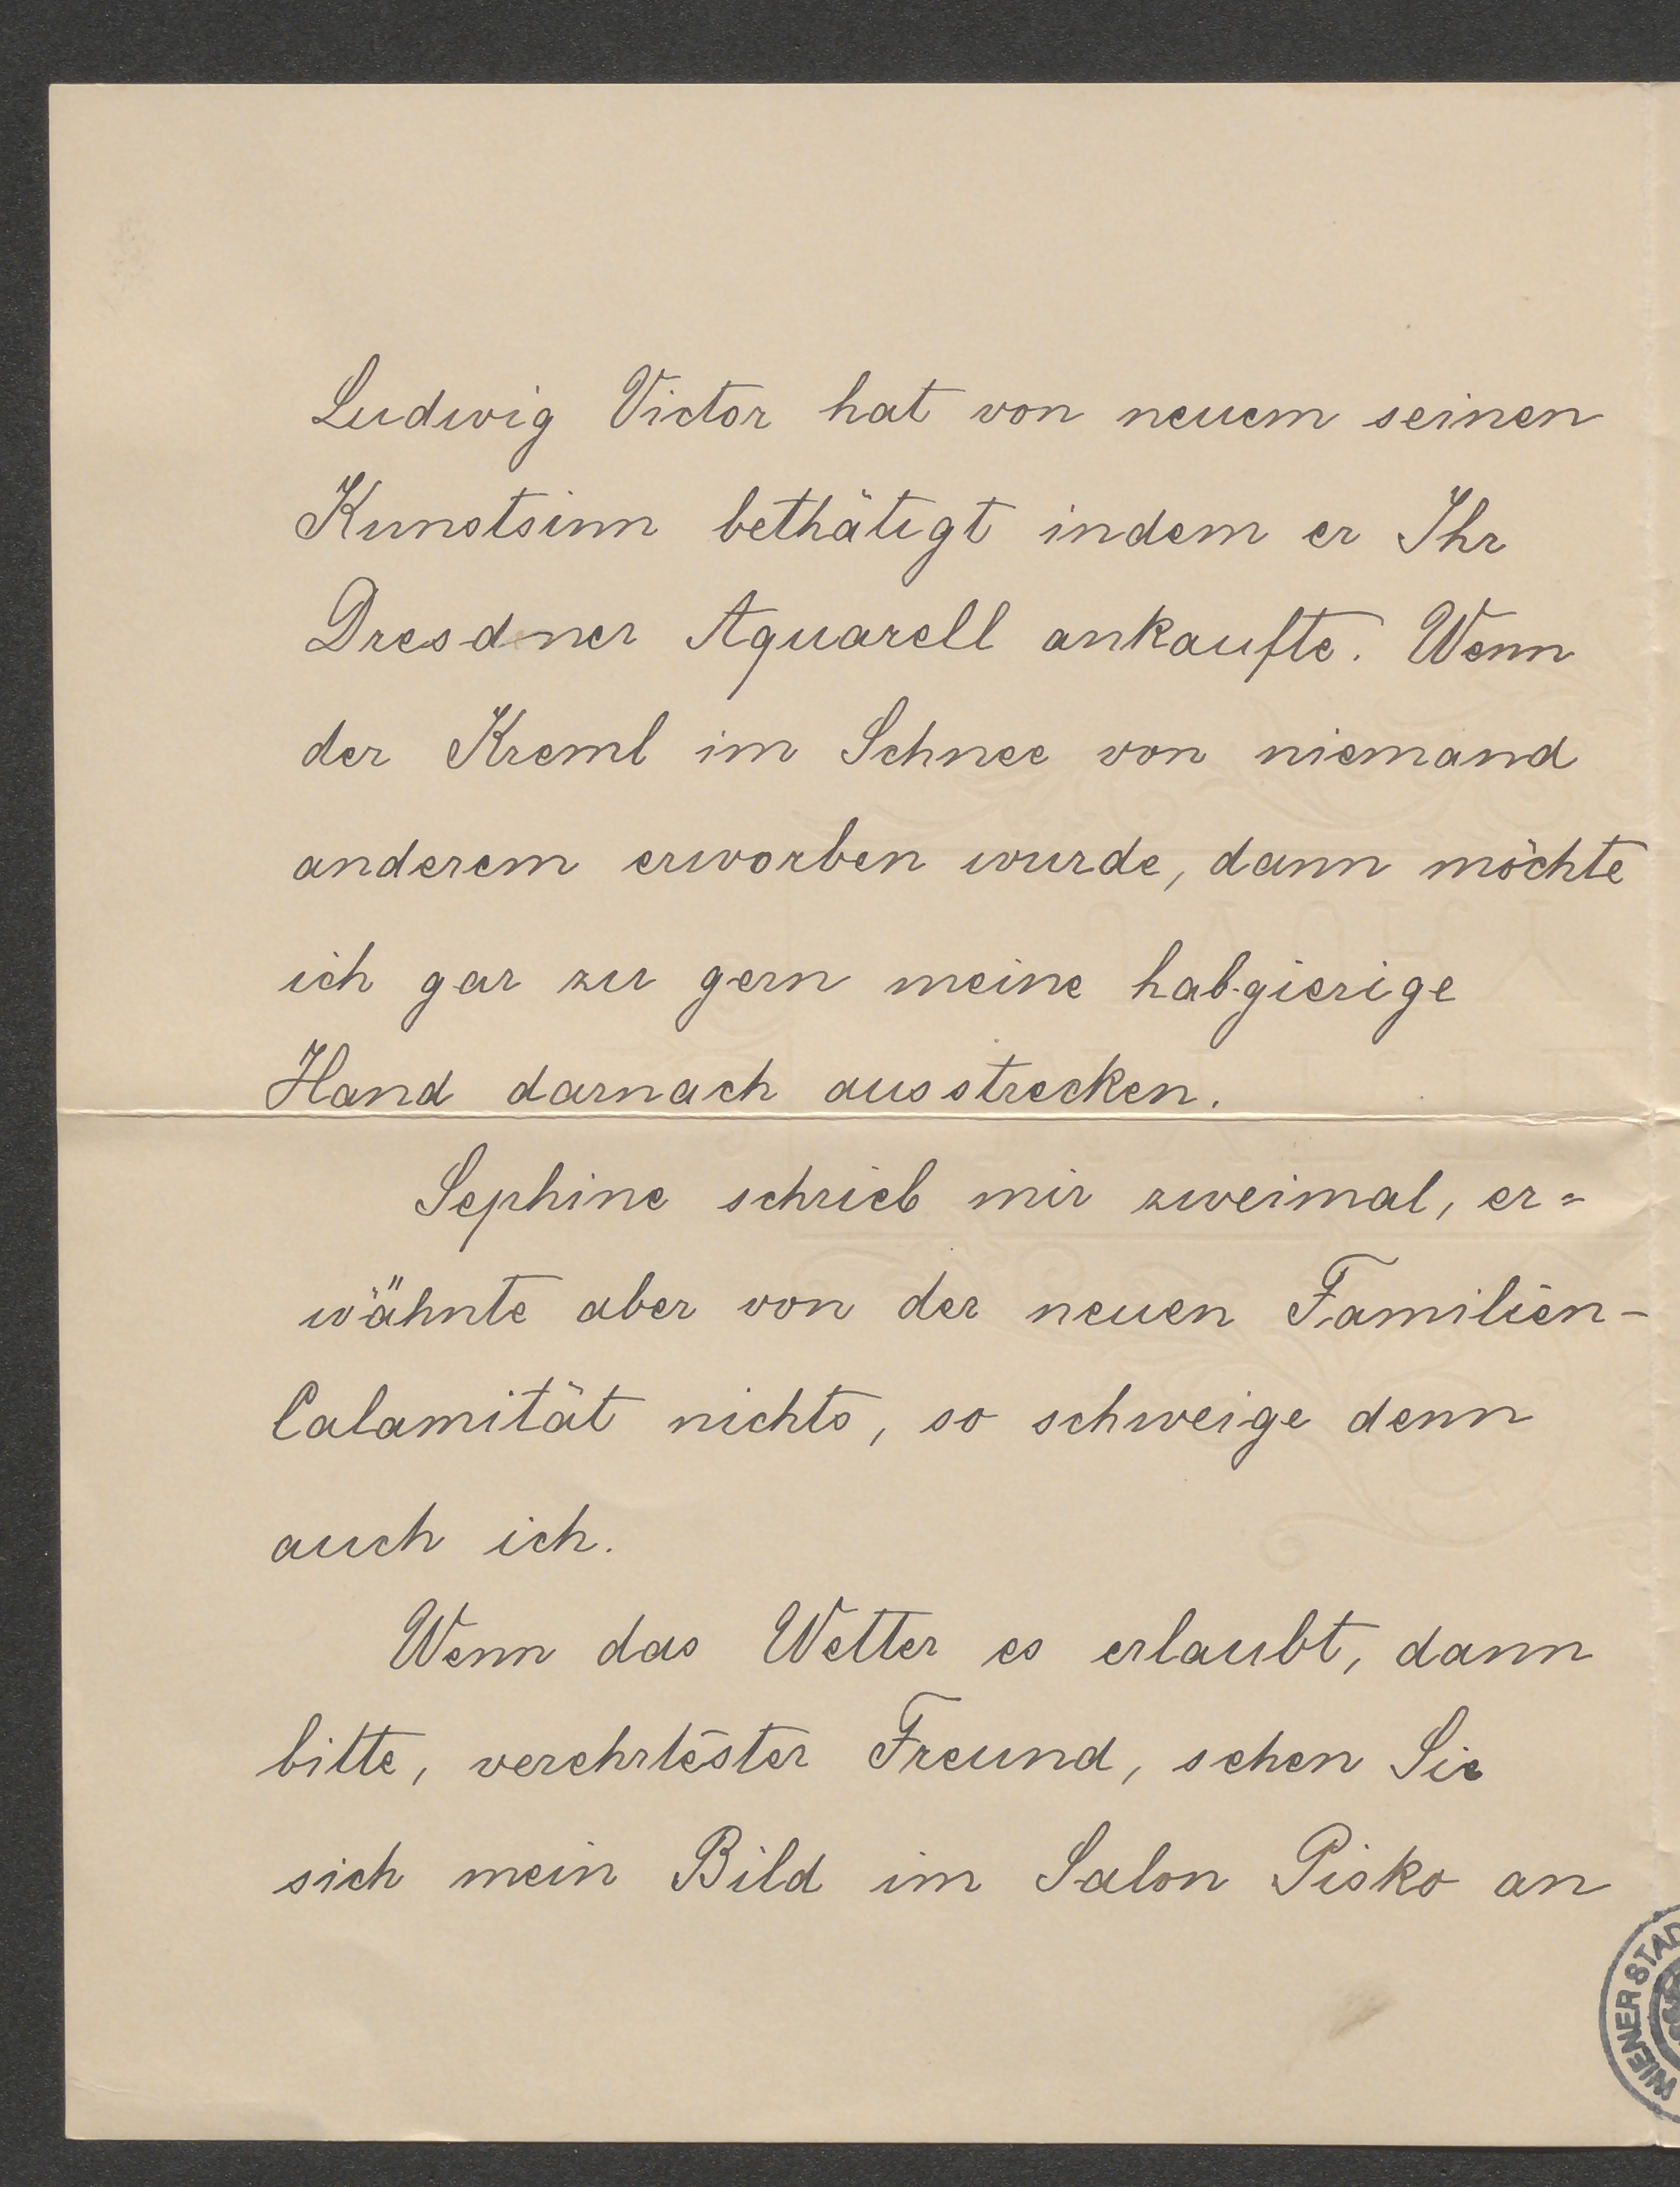 Ludwig Victor hat von neuem seinen
Kunstsinn bethätigt indem er Ihr
Dresdner Aquarell ankaufte. Wenn
der Kreml im Schnee von niemand
anderem erworben wurde, dann möchte
ich gar zu gern meine habgierige
Hand darnach ausstrecken.
Sephine schrieb mir zweimal, er=
wähnte aber von der neuen Familien-
Calamität nichts, so schweige denn
auch ich.
Wenn das Wetter es erlaubt, dann
bitte, verehrtester Freund, sehen Sie
sich mein Bild im Salon Pisko an
WIENER STAD